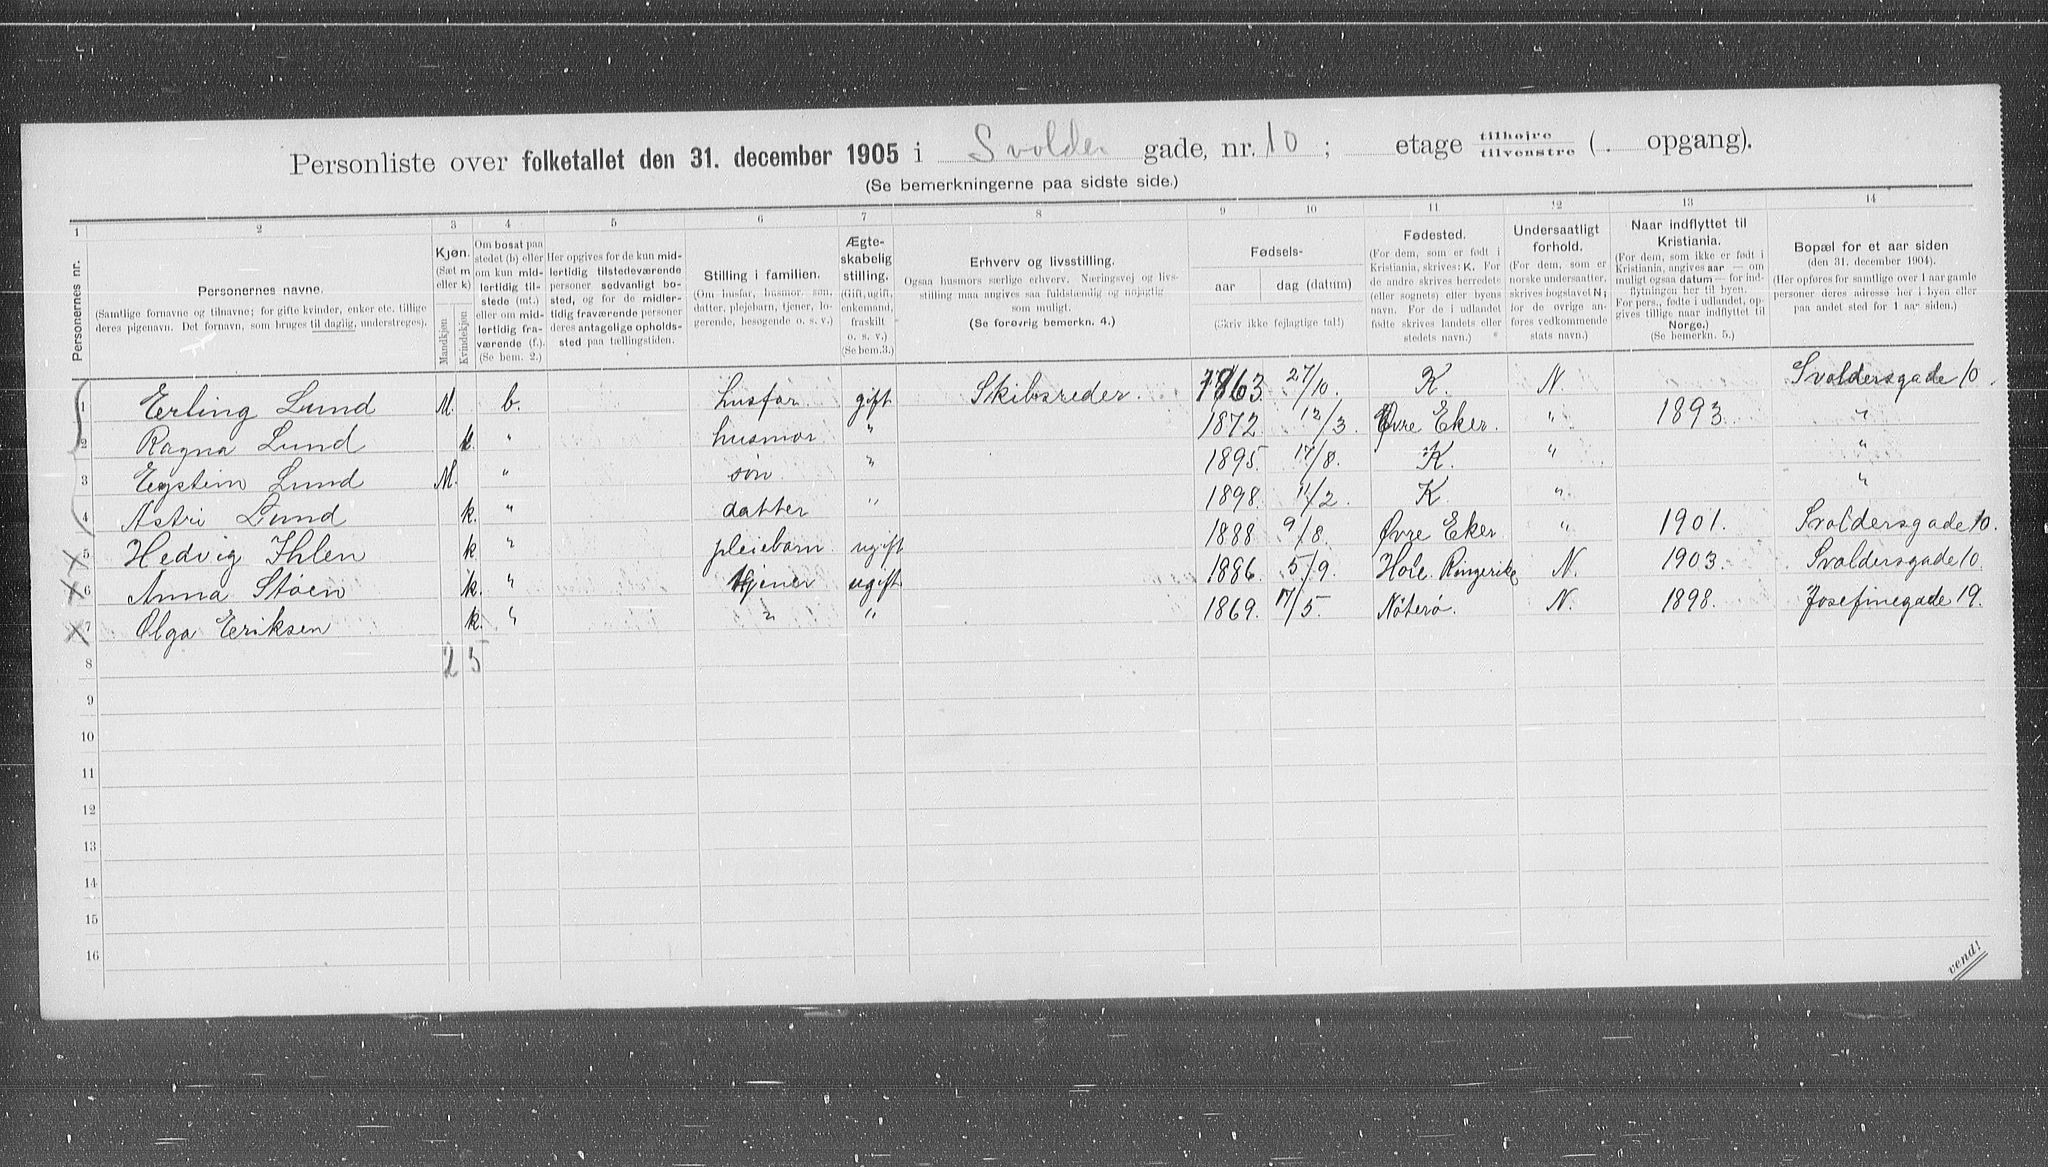 Personliste over folketallet den 31. december 1905 i Svolder gade, nr. 10 ; etage tilhøjre / tilvenstre ( . opgang).
(Se bemerkningerne paa sidste side.)
1 2 3 4 5 6 7 8 9 10 11 12 13 14
Personernes nr.
Personernes navne.
(Samtlige fornavne og tilnavne; for gifte kvinder, enker etc. tillige
deres pigenavn. Det fornavn, som bruges til daglig, understreges).
Kjøn.
(Sæt m
eller k)
Mandkjøn
Kvindekjøn
Om bosat paa
stedet (b) eller
om kun mid-
lertidig til-
stede (mt.)
eller om mid-
lertidig fra-
værende (f.).
(Se bem. 2.)
Her opgives for de kun mid-
lertidig tilstedeværende
personer sedvanligt bo-
sted, og for de midler-
tidig fraværende personer
deres antagelige opholds-
sted paa tællingstiden.
Stilling i familien.
(Om husfar, husmor, søn,
datter, plejebarn, tjener, lo-
gerende, besøgende o. s. v.)
Ægte-
skabelig
stilling.
(Gift, ugift,
enkemand,
fraskilt
o. s. v.)
(Se bem. 3.)
Erhverv og livsstilling.
Ogsaa husmors særlige erhverv. Næringsvej og livs-
stilling maa angives saa fuldstændig og nøjagtig
som muligt.
(Se forøvrig bemerkn. 4.)
Fødsels-
aar dag (datum)
(Skriv ikke fejlagtige tal!)
Fødested.
(For dem, som er født i
Kristiania, skrives: K. For
de andre skrives herredets
(eller sognets) eller byens
navn. For de i udlandet
fødte skrives landets eller
stedets navn.)
Undersaatligt
forhold.
(For dem, som er
norske undersaatter,
skrives bogstavet N;
for de øvrige an-
føres vedkommende
stats navn.)
Naar indflyttet til
Kristiania.
(For dem, som ikke er født i
Kristiania, angives aar — om
muligt ogsaa datum — for ind-
flytningen her til byen.
For pers., fødte i udlandet, op-
gives tillige naar indflyttet til
Norge.)
(Se bemerkn. 5.)
Bopæl for et aar siden
(den 31. december 1904).
(Her opføres for samtlige over 1 aar gamle
personer deres adresse her i byen eller
paa andet sted for 1 aar siden.)
1 Erling Lund M. b. husfar gift Skibsreder. 1863 27/10. K. N Svoldersgade 10.
2 Ragna Lund k. " husmor " 1872 12/3. Øvre Eker. " 1893 "
3 Eystein Lund M. " søn " 1895. 17/8. K. " "
4 Astri Lund k. " datter " 1898. 11/2. K. " "
5 Hedvig Ihlen k " pleiebarn ugift 1888 9/8. Øvre Eker " 1901. Svoldersgade 10.
6 Anna Støen k. " tjener ugift 1886. 5/9. Hole Ringerike N. 1903. Svoldersgade 10.
7 Olga Eriksen k. " " " 1869. 17/5. Nøterø. N. 1898. Josefinegade 19.
8 2 5
9
10
11
12
13
14
15
16
vend!